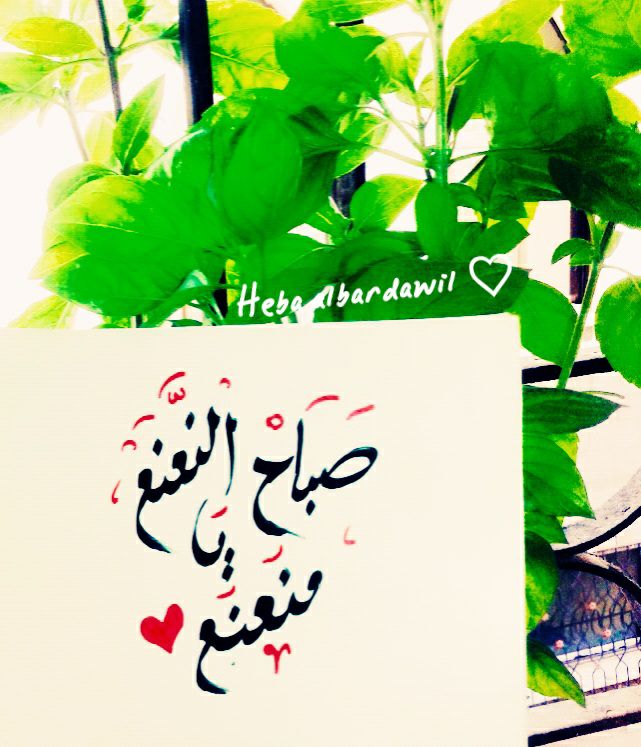 Heba albardawil
صَبَاحْ النَّعْنَعْ
يَا
مْنَعْنَعْ